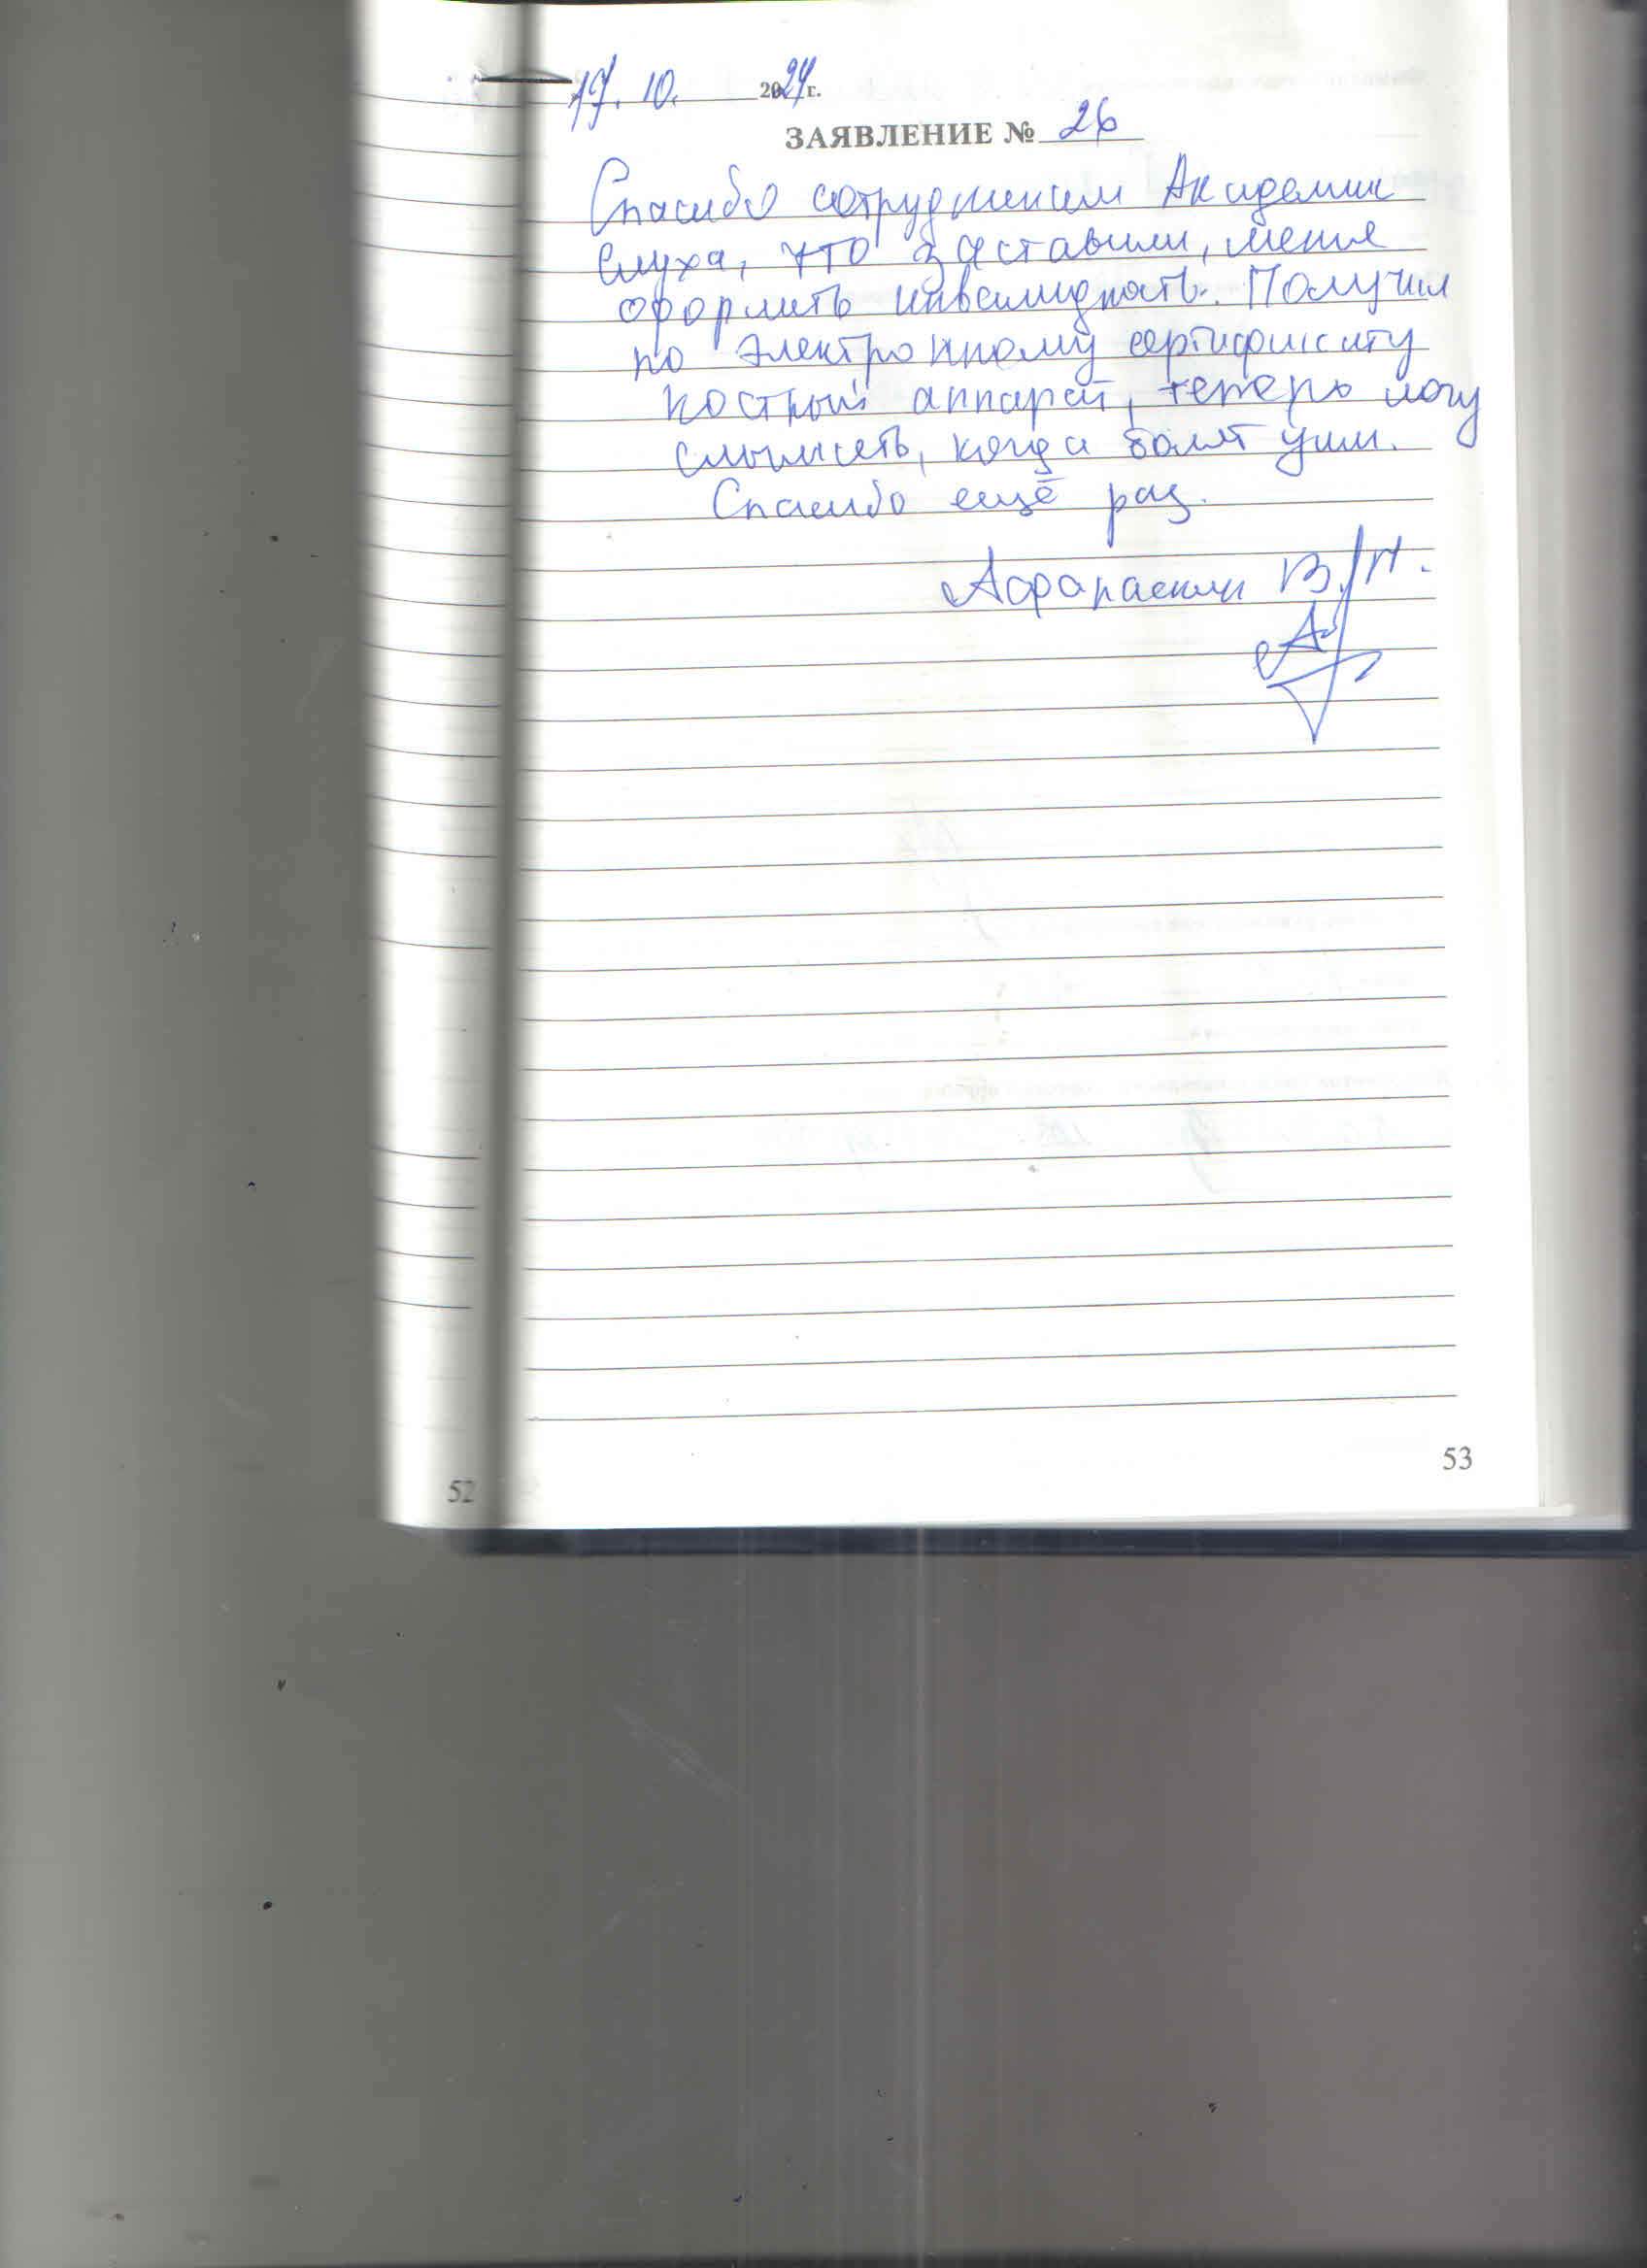 10. 2024г.
ЗАЯВЛЕНИЕ № 26
Спасибо сотрудникам Академии
Слуха, что заставили, меня
оформить инвалидность. Получил
по электронному сертификату
костный аппарат, теперь могу
слышать, когда болят уши.
Спасибо ещё раз.
В. Н.
53
52